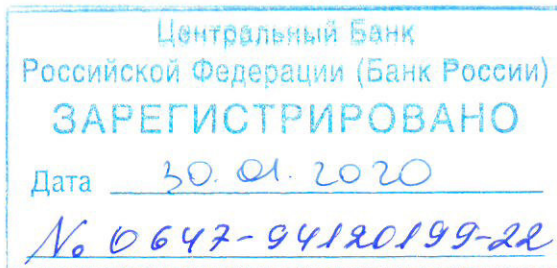 Центральный Банк
Российской Федерации (Банк России)
ЗАРЕГИСТРИРОВАНО
Дата 30.01.2020
№ 0647-94120199-22